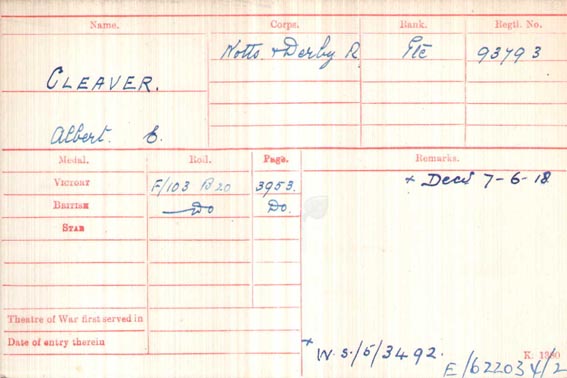 Name. Corps. Rank. Regtl. No.
CLEAVER. Notts. & Derby R. Pte 93793
Albert. E.
Medal. Roll. Page. Remarks.
VICTORY F/103 B20 3953. + Decd 7-6-18
BRITISH Do Do.
STAR
Theatre of War first served in
Date of entry therein
+ W.S./5/3492. K. 1380
E/622034/2